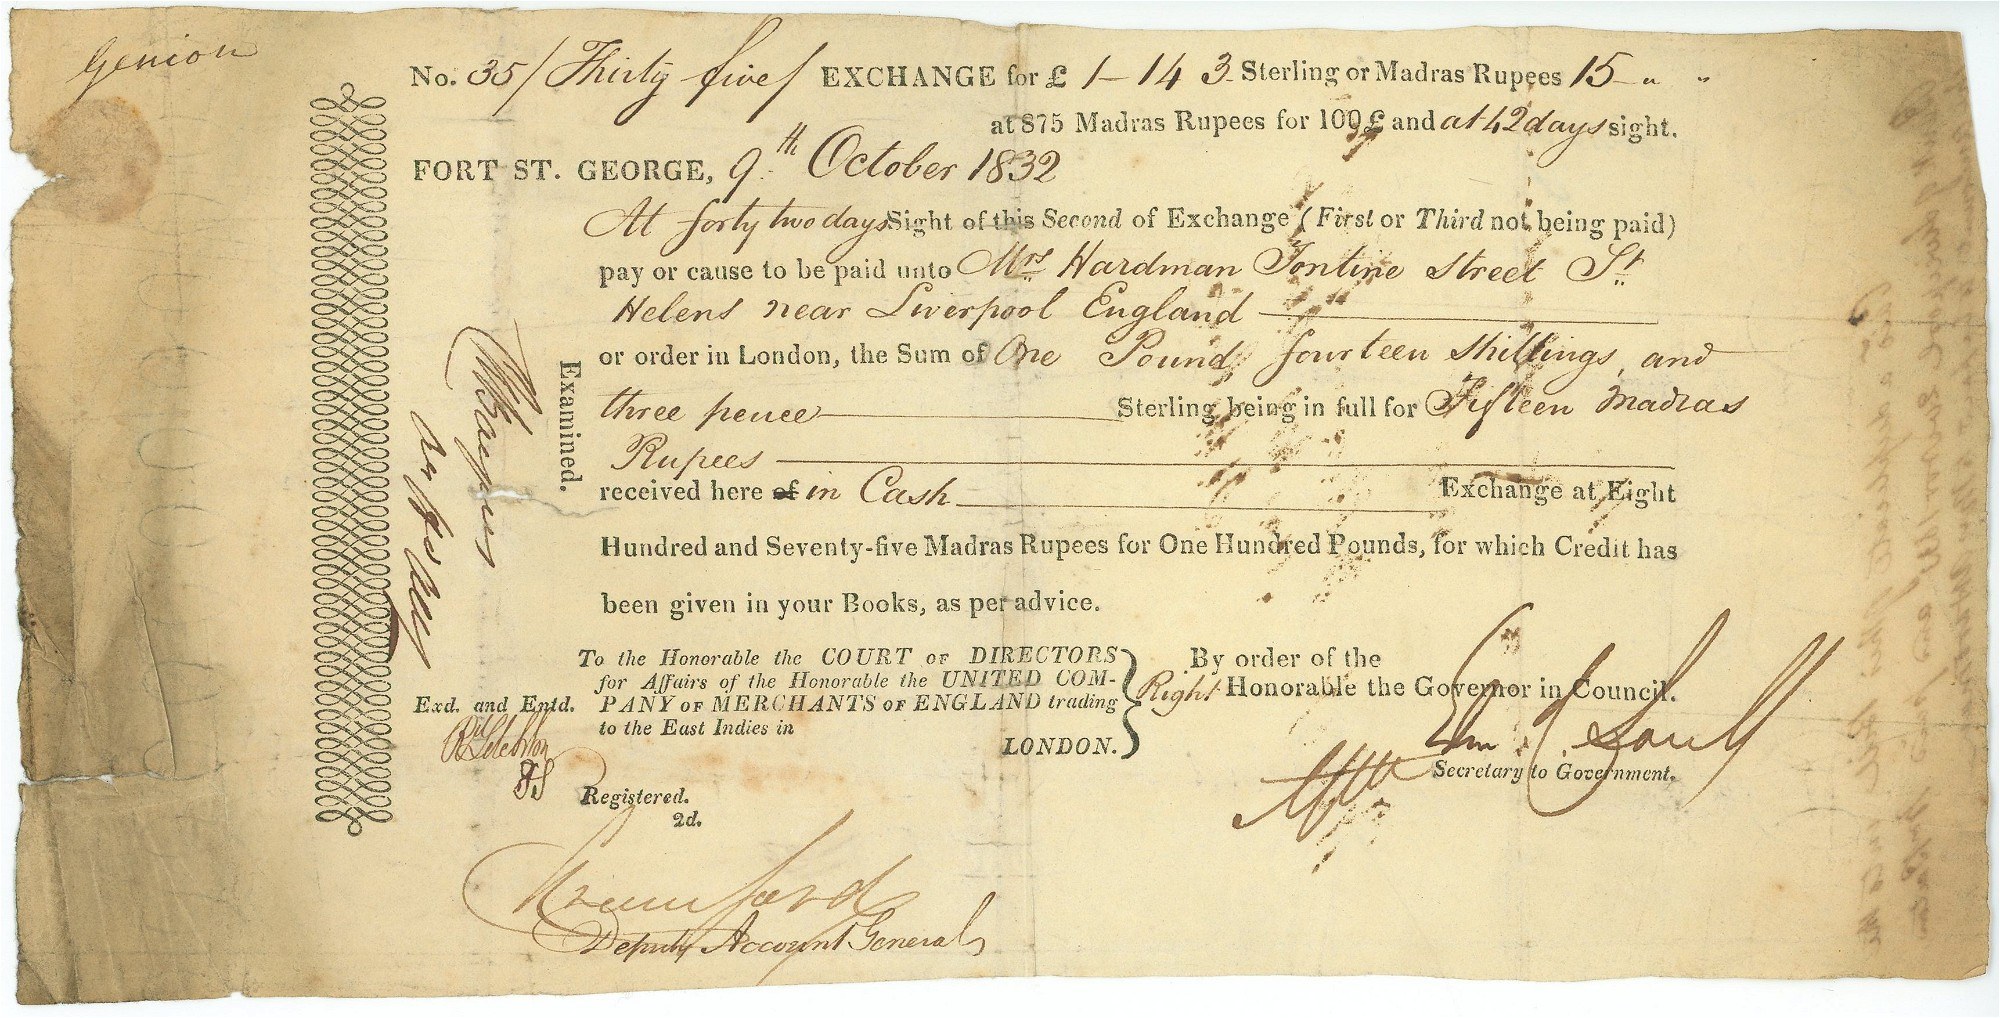 Genion
No. 35/ Thirty five/ EXCHANGE for £ 1–14 3 Sterling or Madras Rupees 15 – " "
at 875 Madras Rupees for 100 £ and at 42 days sight.
FORT ST. GEORGE, 9th October 1832
At forty two days Sight of this Second of Exchange (First or Third not being paid)
pay or cause to be paid unto Mrs Hardman Tontine Street St
Helens near Liverpool England
or order in London, the Sum of One Pound, fourteen Shillings, and
three pence Sterling being in full for Fifteen Madras
Rupees
received here of in Cash Exchange at Eight
Hundred and Seventy-five Madras Rupees for One Hundred Pounds, for which Credit has
been given in your Books, as per advice.
Examined.
To the Honorable the COURT OF DIRECTORS
for Affairs of the Honorable the UNITED COM-
PANY OF MERCHANTS OF ENGLAND trading
to the East Indies in
LONDON.
By order of the
Right Honorable the Governor in Council.
Secretary to Government.
Exd. and Entd.
Registered.
2d.
Deputy Account General